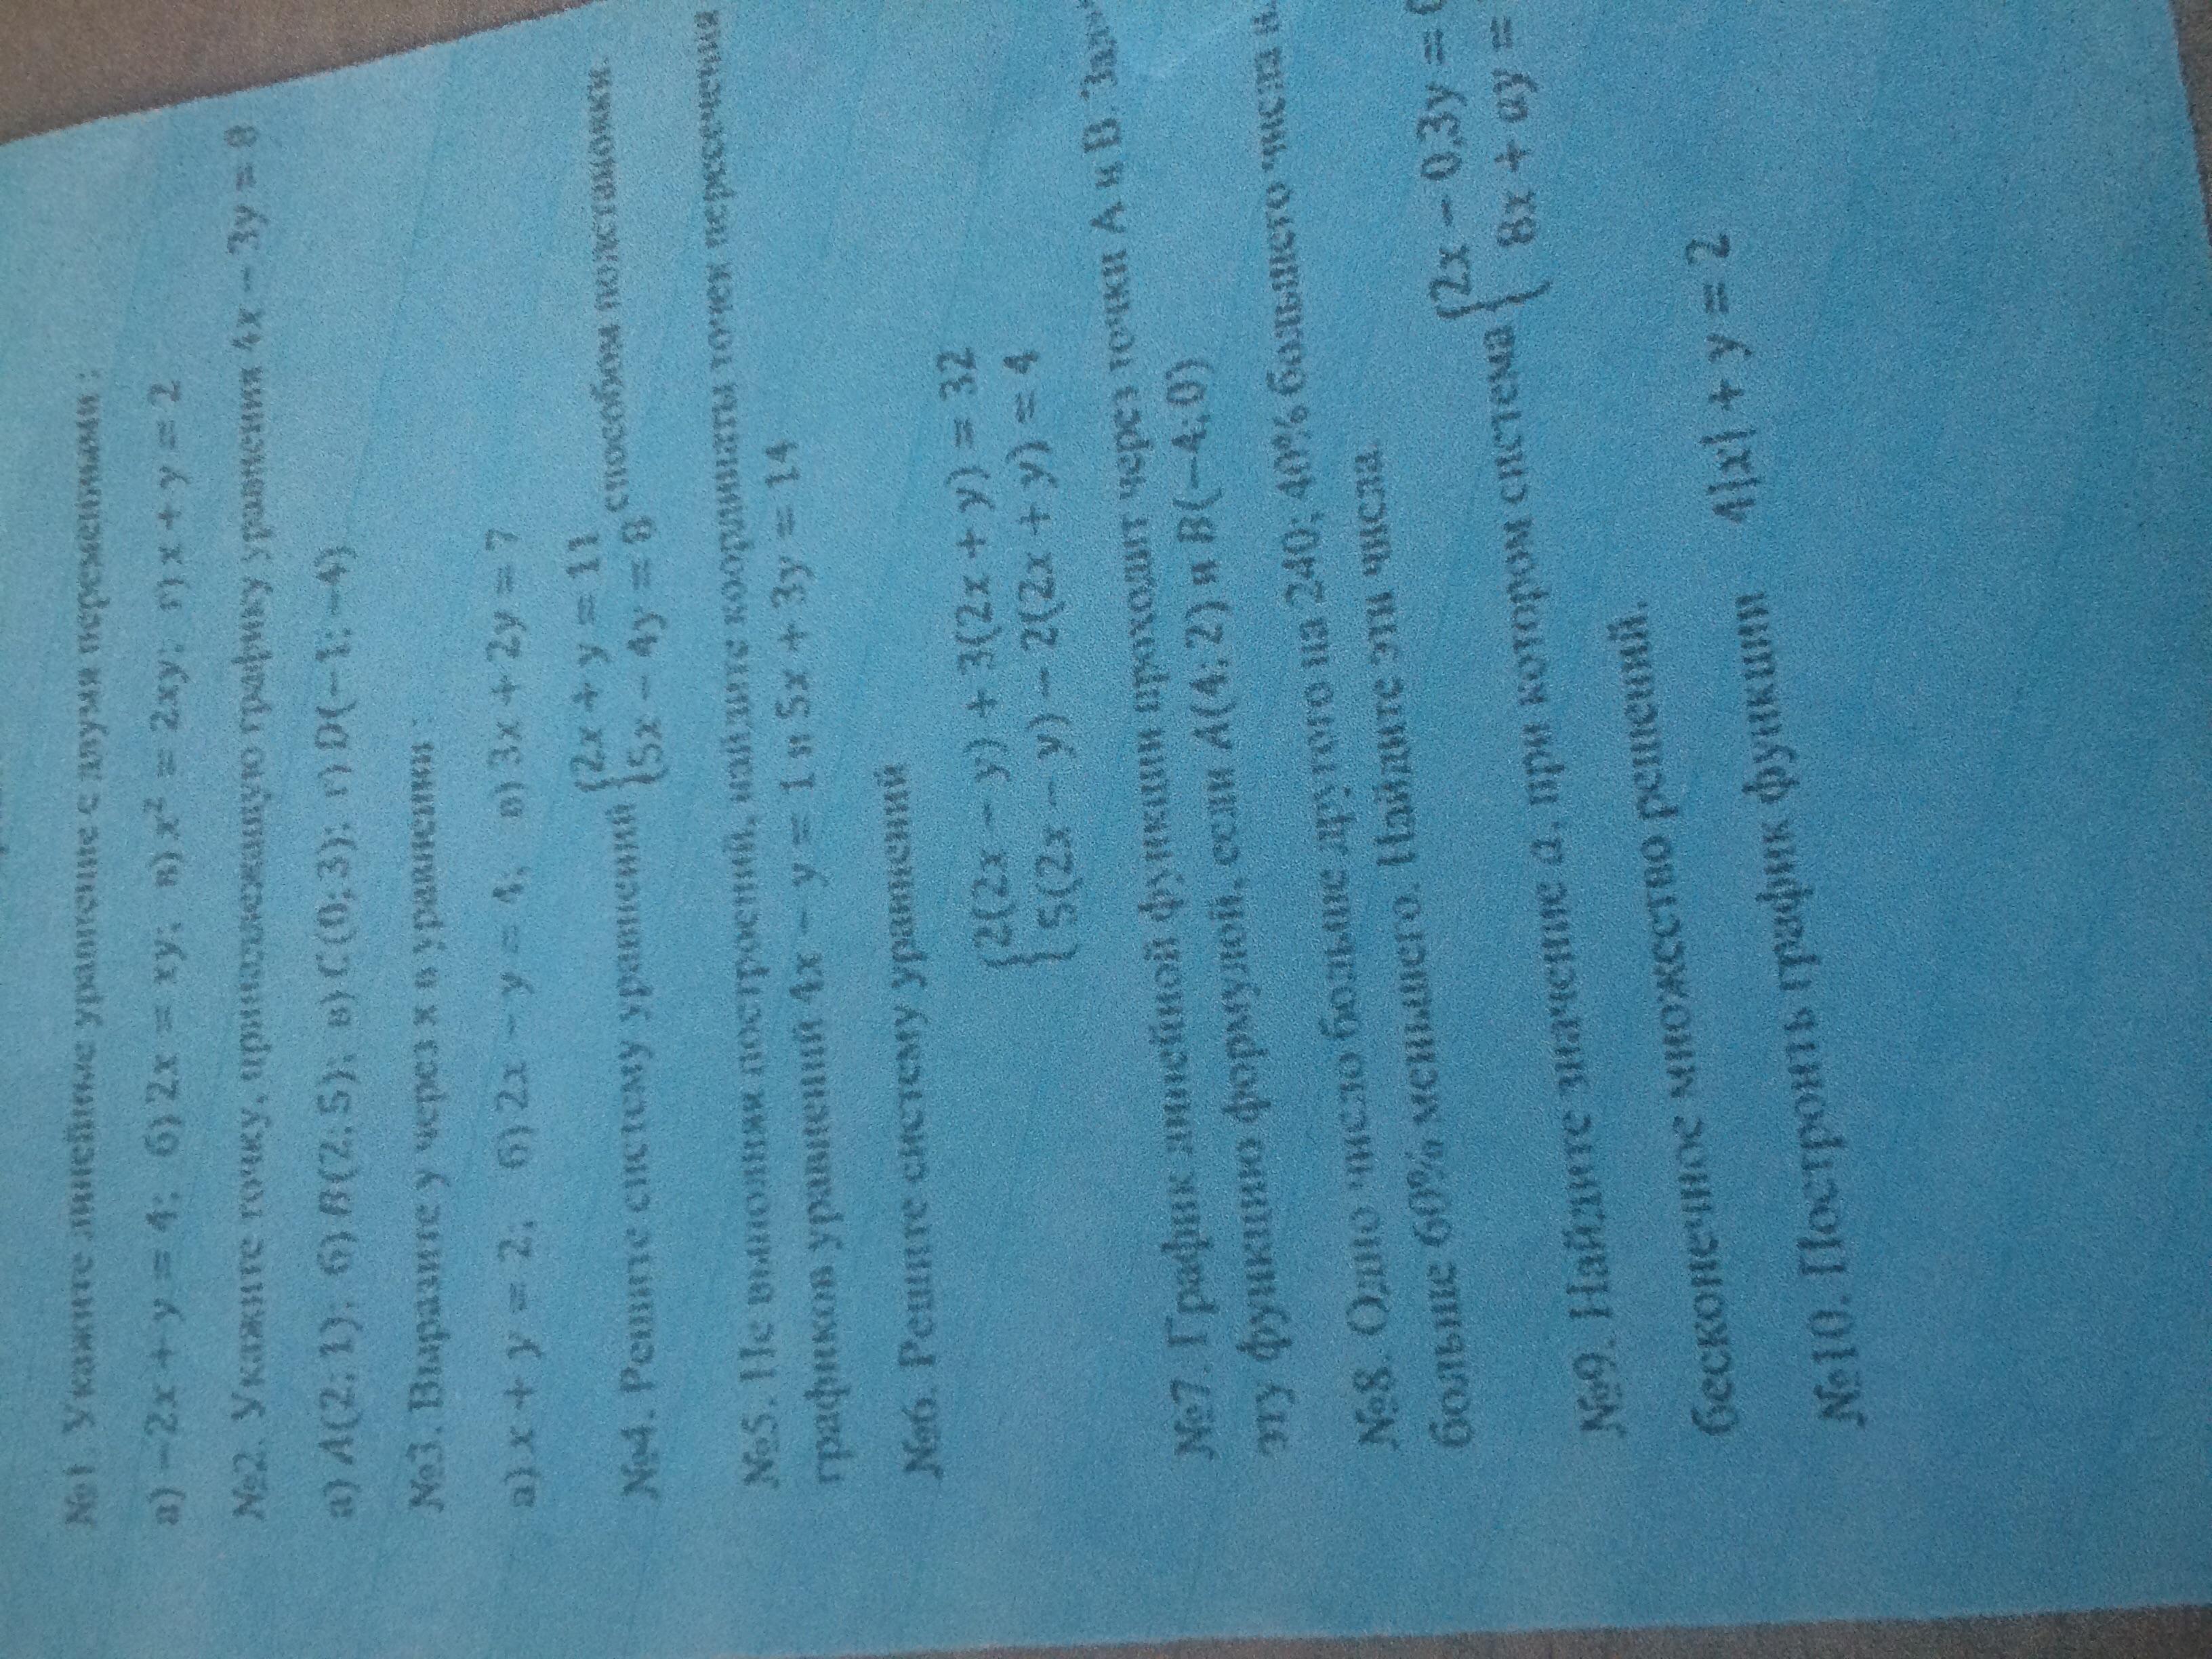 №1. Укажите линейные уравнение с двумя переменными :
а) −2x + y = 4; б) 2x = xy; в) x² = 2xy; г) x + y = 2
№2. Укажите точку, принадлежащую графику уравнения 4x − 3y = 8
а) A(2; 1); б) B(2, 5); в) C(0; 3); г) D(−1; −4)
№3. Выразите у через х в уравнении :
а) x + y = 2; б) 2x − y = 4; в) 3x + 2y = 7
№4. Решите систему уравнений {2x + y = 11
{5x − 4y = 8 способом подстановки.
№5. Не выполняя построений, найдите координаты точек пересечения
графиков уравнений 4x − y = 1 и 5x + 3y = 14
№6. Решите систему уравнений
{2(2x − y) + 3(2x + y) = 32
{5(2x − y) − 2(2x + y) = 4
№7. График линейной функции проходит через точки А и В.
эту функцию формулой, если A(4; 2) и B(−4; 0)
№8. Одно число больше другого на 240; 40% большего числа
больше 60% меньшего. Найдите эти числа.
№9. Найдите значение a, при котором система {2x − 0,3y =
{8x + ay =
бесконечное множество решений.
№10. Построить график функции 4|x| + y = 2